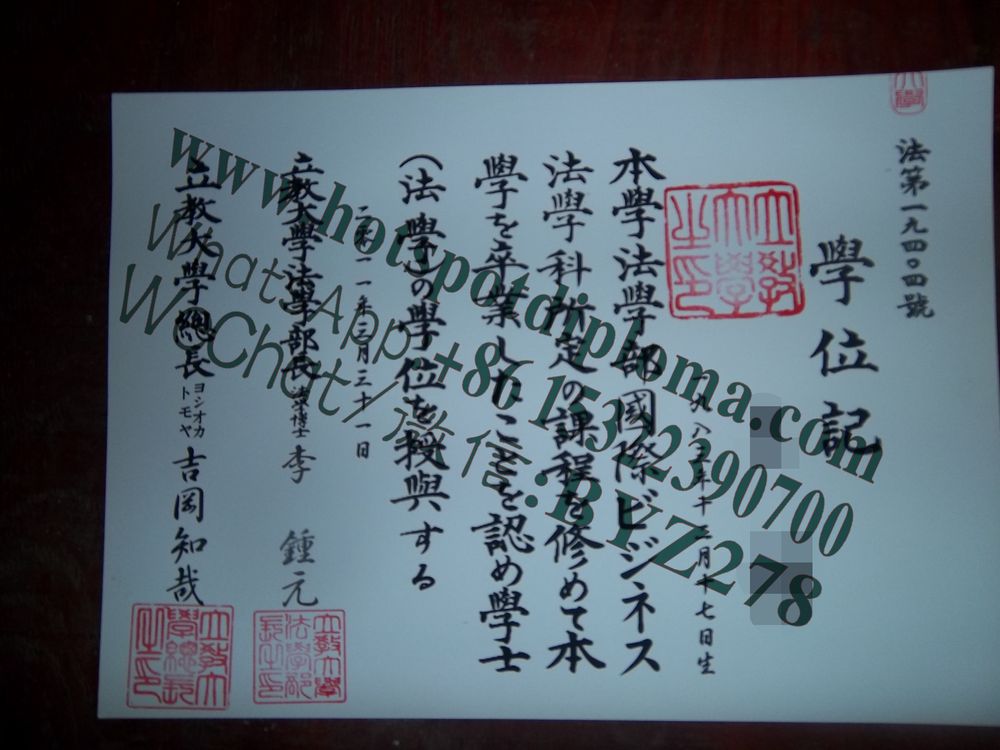 法第一九四〇四號
學位記
立教大學之印
本學法學部國際ビジネス
法學科所定の課程を修めて本
學を卒業したことを認め學士
(法學)の學位を授與する
二〇一一年三月三十一日
立教大學法學部長 法學博士 李 鍾元
立教大學總長 ヨシオカ トモヤ 吉岡知哉
立教大學法學部長之印
立教大學總長之印
www.hotspotdiploma.com
WhatsApp:+86 15372390700
WeChat/微信:BYZ278